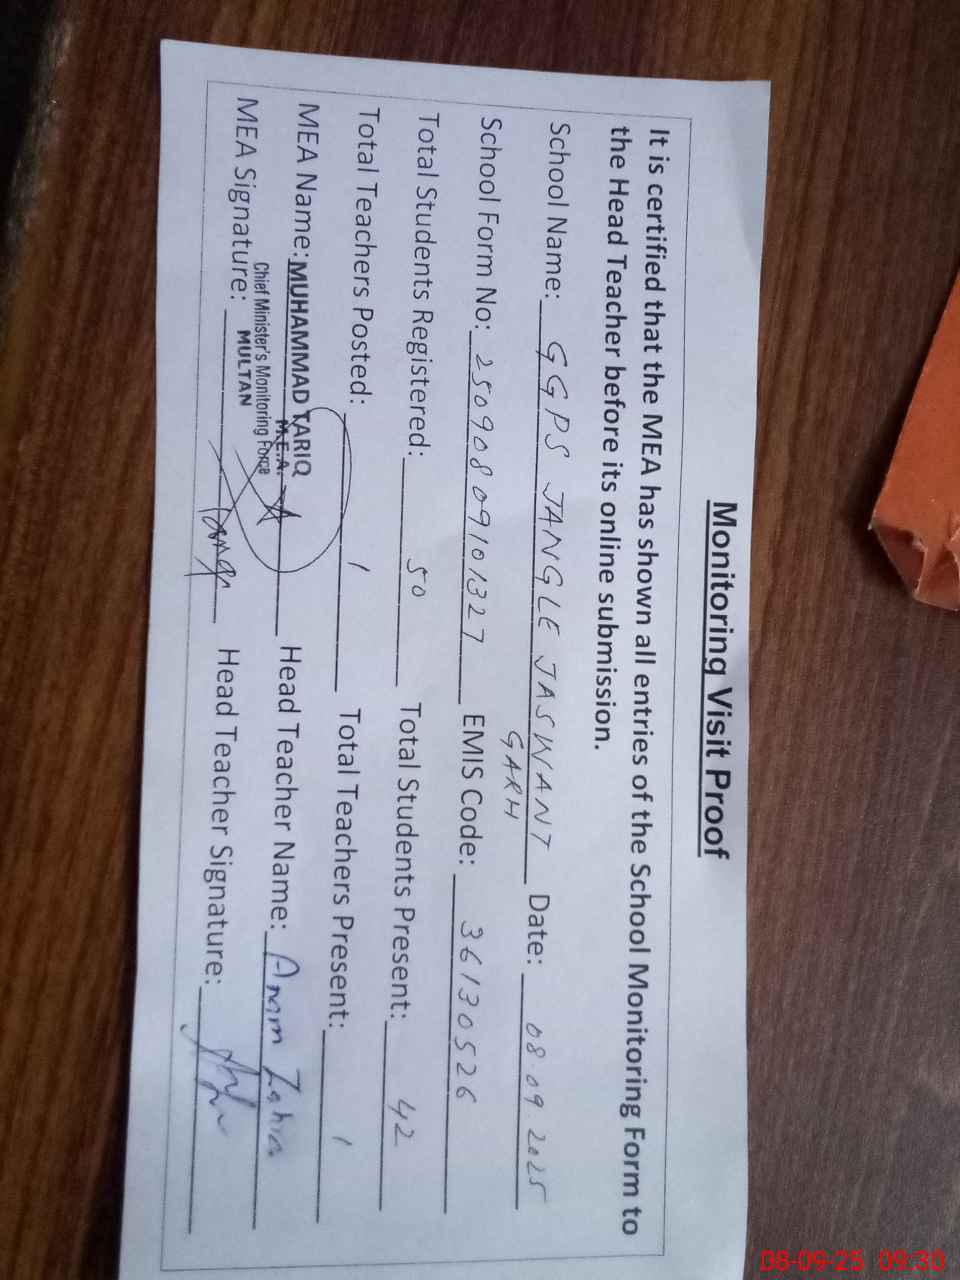 Monitoring Visit Proof
It is certified that the MEA has shown all entries of the School Monitoring Form to
the Head Teacher before its online submission.
School Name: GGPS JANGLE JASWANT GARH Date: 08.09.2025
School Form No: 25090809101327 EMIS Code: 36130526
Total Students Registered: 50 Total Students Present: 42
Total Teachers Posted: 1 Total Teachers Present: 1
MEA Name: MUHAMMAD TARIQ Head Teacher Name: Anam Zahra
M.E.A.
Chief Minister's Monitoring Force
MULTAN
MEA Signature: Head Teacher Signature:
08-09-25 09:30